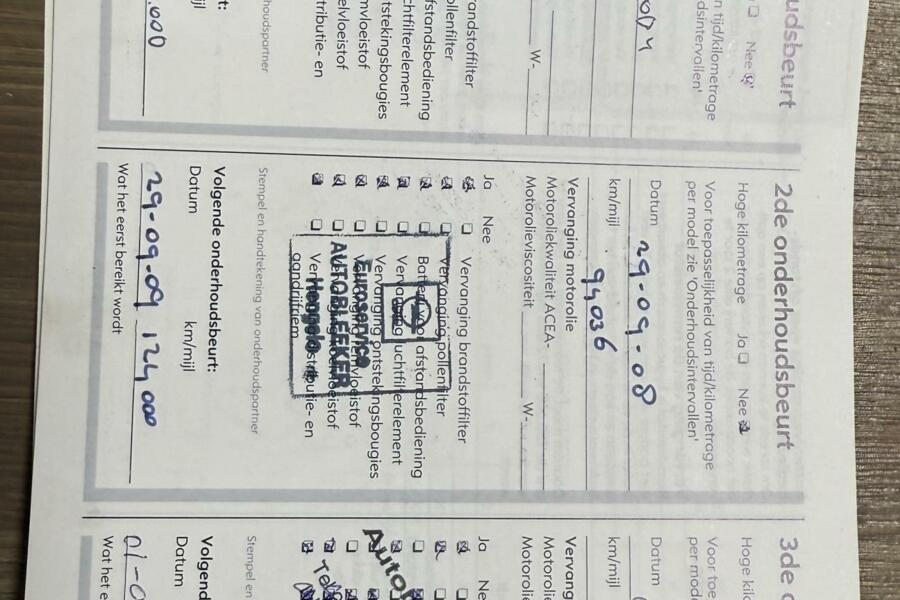 oudsbeurt
Nee
n tijd/kilometrage
dsintervallen'
W-
randstoffilter
ollenfilter
fstandsbediening
chtfilterelement
tstekingsbougies
mvloeistof
elvloeistof
tributie- en
houdspartner
urt:
ijl
.000
2de onderhoudsbeurt
Hoge kilometrage Ja Nee
Voor toepasselijkheid van tijd/kilometrage
per model zie 'Onderhoudsintervallen'
Datum 29-09-08
km/mijl 91,036
Vervanging motorolie
Motoroliekwaliteit ACEA-
Motorolieviscositeit W-
Ja Nee
Vervanging brandstoffilter
Vervanging pollenfilter
Batterij afstandsbediening
Vervanging luchtfilterelement
Vervanging ontstekingsbougies
Euroservice
AUTOBLEEKER
Hengelo
aandrijfriem
Stempel en handtekening van onderhoudspartner
Volgende onderhoudsbeurt:
Datum km/mijl
29-09-09 124,000
Wat het eerst bereikt wordt
3de
Hoge kilo
Voor toe
per mode
Datum
km/mijl
Vervang
Motorolie
Motorolie
Ja Ne
Auto
Stempel en
Volgend
Datum
01-0
Wat het e